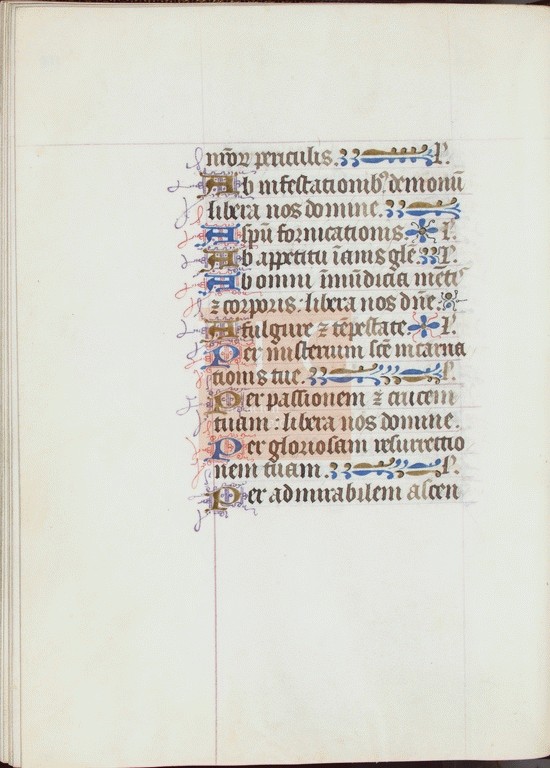 nr̄oꝝ periculis. L'.
Ab infestationibꝰ demonū
libera nos domine. L'.
A spū fornicationis. L'.
Ab appetitu īanis gl̄e. L'.
Ab omni īmūdicia mētis
⁊ corporis: libera nos dn̄e.
A fulgure ⁊ tēpestate. L'.
Per misterium sc̄e incarna
tionis tue. L'.
Per passionem ⁊ crucem
tuam: libera nos domine.
Per gloriosam resurrectio
nem tuam. L'.
Per admirabilem ascen